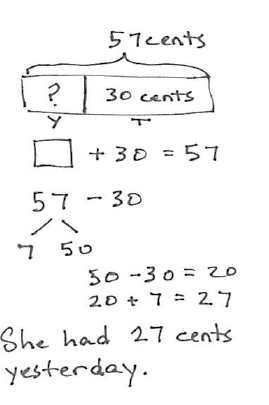 57 cents
? 30 cents
Y T
□ + 30 = 57
57 - 30
7 50
50 - 30 = 20
20 + 7 = 27
She had 27 cents
yesterday.